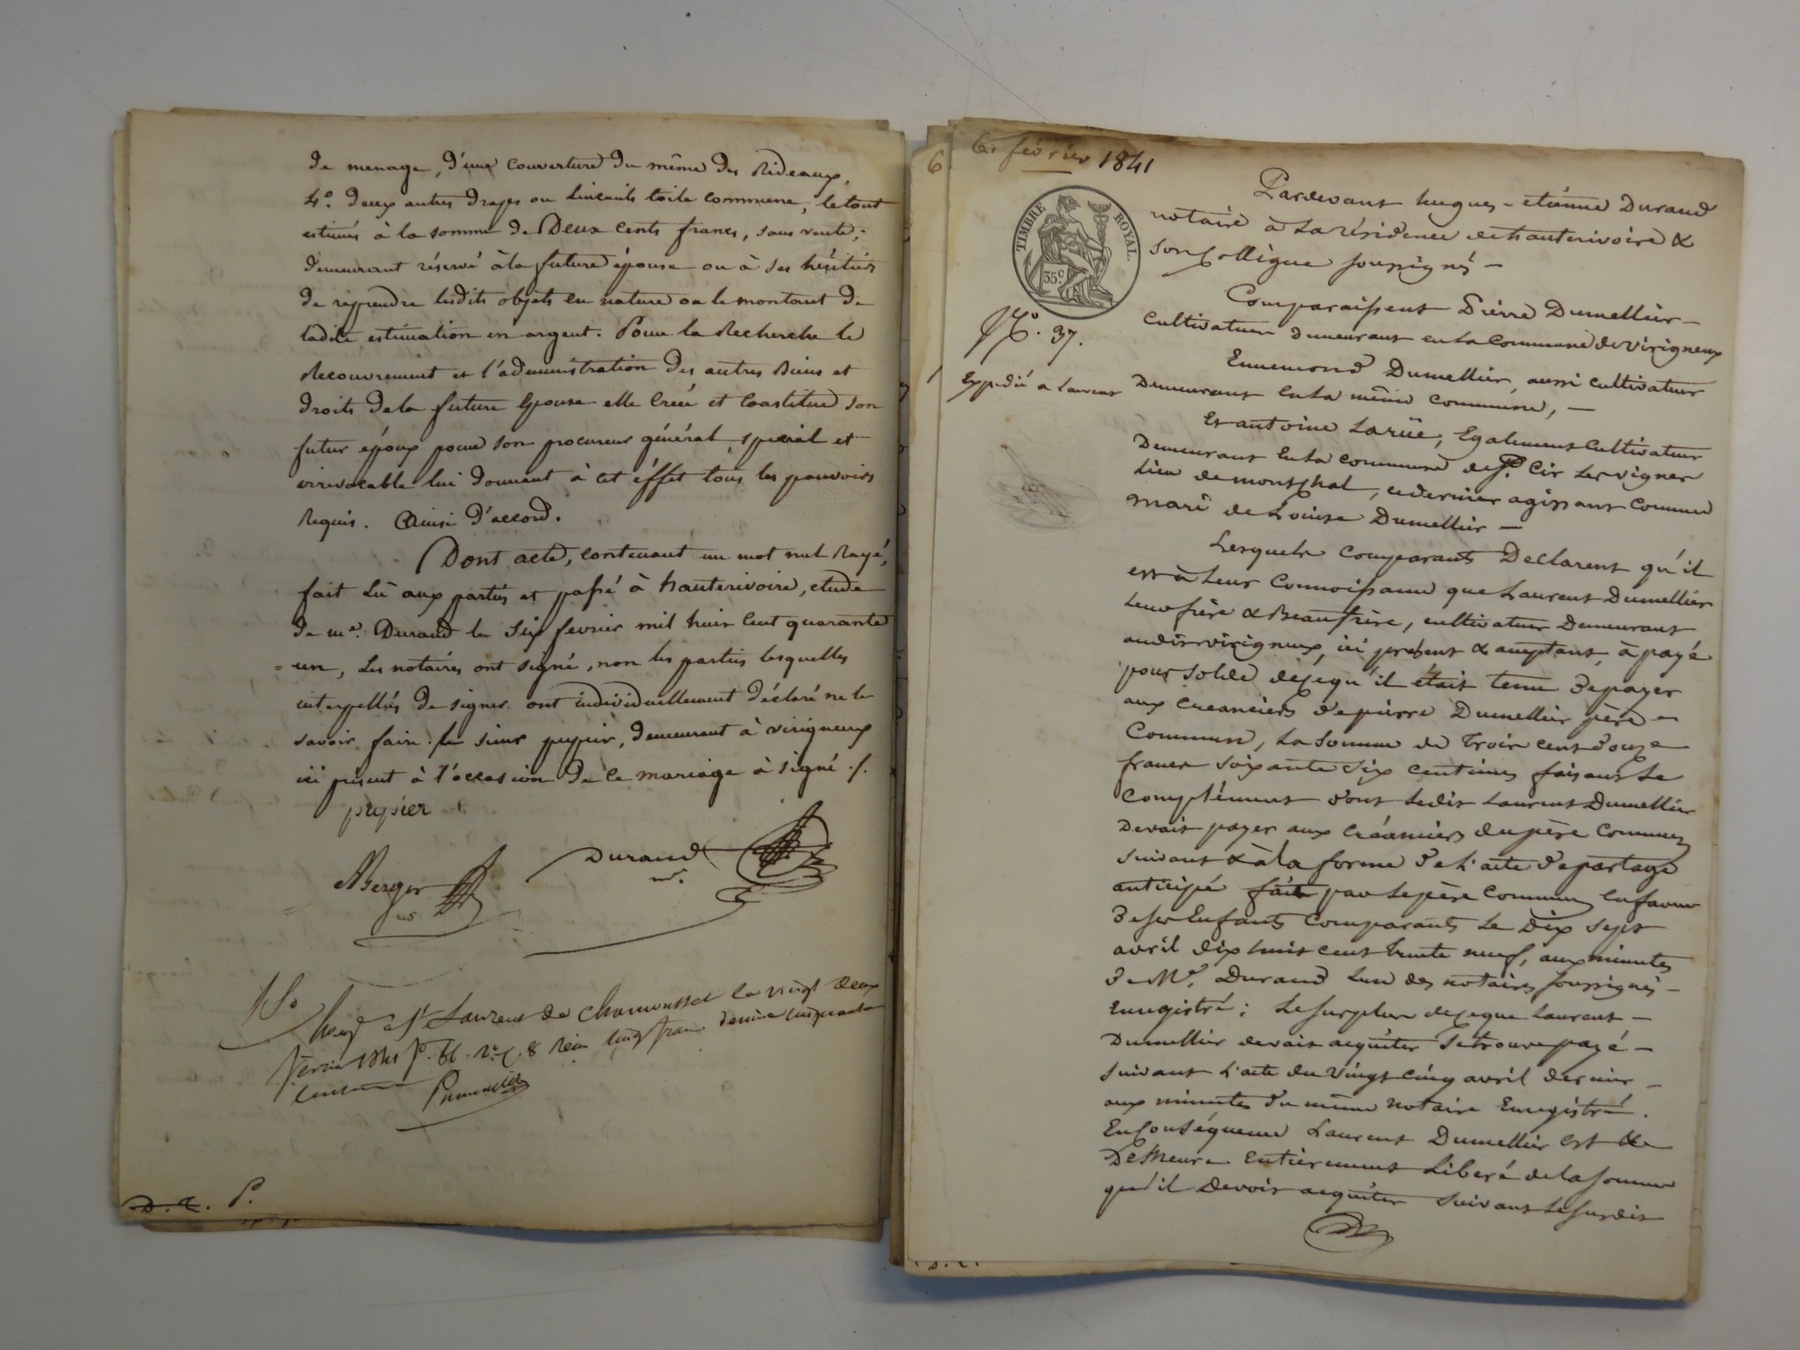 de menage, d'une couverture du même des Rideaux,
4º. deux autres draps ou linceuils toile commune, le tout
estimés à la somme de Deux cents francs, sans vente;
demeurant réservé à la future épouse ou à ses héritiers
de reprendre lesdits objets en nature ou le montant de
ladite estimation en argent. Pour la Recherche le
Recouvrement et l'administration des autres Biens et
droits de la future Epouse elle Créé et Constitue son
futur époux pour son procureur général, spécial et
irrévocable lui donnant à cet éffet tous les pouvoirs
Requis. Ainsi d'accord.
Dont acte, contenant un mot nul Rayé,
fait Lu aux parties et passé à hauterivoire, etude
de me. Durand le Six fevrier mil huit Cent quarante
= un, Les notaires ont signé, non les parties lesquelles
interpellés de signer ont individuellement déclaré ne le
savoir faire. le sieur pupier, demeurant à virigneux
ici présent à l'occasion de ce mariage à signé ./.
pupier
Berger
Durand
nre.
à St Laurent de Chamousset le vingt deux
fevrier 1841 fo. 66. Ro. C. 8 Reçu cinq francs decime cinquante
centimes
D. C. P.
6
6. février 1841
TIMBRE ROYAL.
35c.
No. 37.
Expédié a Laurent
Pardevant hugues-etiénne Durand
notaire à La résidence de hauterivoire &
son Collègue soussignés —
Comparaissent Pierre Dumellier —
Cultivateur demeurant en la Commune de virigneux
Ennemond Dumellier, aussi cultivateur
Demeurant En la même Commune, —
Et antoine Larüe, Egalement Cultivateur
Demeurant En la Commune de St. Cir Les vignes
Lieu de montchal, ce dernier agissant Comme
mari de Louise Dumellier —
Lesquels Comparants Declarent qu'il
est à Leur Connoissance que Laurent Dumellier
Leur frère & Beaufrère, cultivateur Demeurant
audit virigneux, ici présent & acceptant, à payé
pour solde de ce qu'il était tenu de payer
aux Creanciers de pierre Dumellier père —
Commun, La Somme de Trois cent Douze
francs soixante Six centimes faisant Le
Complément dont Ledit Laurent Dumellier
Devait payer aux Créanciers du père Commun
suivant & à la forme de L'acte de partage
anticipé fait par Le père Commun En faveur
de ses Enfants Comparants Le Dix sept
avril dix huit cent trente neuf, aux minutes
de Me. Durand L'un des notaires Soussignés —
Enregistré; Le surplus de ce que Laurent —
Dumellier devait acquitter Se trouve payé —
suivant L'acte du vingt cinq avril dernier —
aux minutes du même notaire Enregistré.
En Conséquence Laurent Dumellier est &
Demeure Entièrement Liberé de la Somme
qu'il Devoit acquitter suivant Le susdit